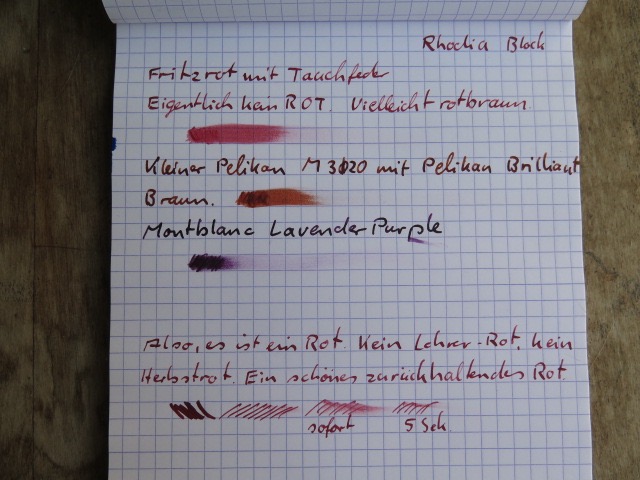 Rhodia Block
Fritzrot mit Tauchfeder
Eigentlich kein ROT. Vielleicht rotbraun.
Kleiner Pelikan M320 mit Pelikan Brilliant
Braun.
Montblanc Lavender Purple
Also, es ist ein Rot. Kein Lehrer-Rot, kein
Herbstrot. Ein schönes zurückhaltendes Rot.
sofort 5 Sek.